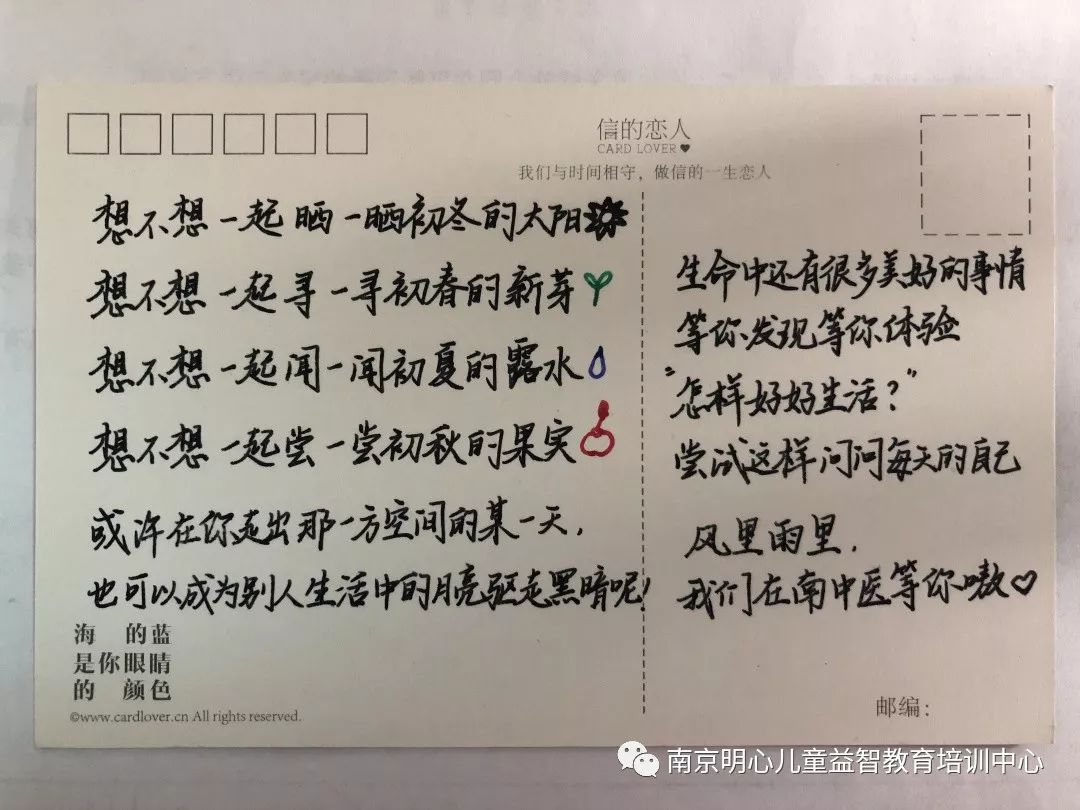 信的恋人
CARD LOVER♥
我们与时间相守，做信的一生恋人
想不想一起晒一晒初冬的太阳
想不想一起寻一寻初春的新芽
想不想一起闻一闻初夏的露水
想不想一起尝一尝初秋的果实
或许在你走出那一方空间的某一天，
也可以成为别人生活中的月亮驱走黑暗呢！
生命中还有很多美好的事情
等你发现等你体验
“怎样好好生活？”
尝试这样问问每天的自己
风里雨里，
我们在南中医等你嗷♡
海 的蓝
是你眼睛
的 颜色
©www.cardlover.cn All rights reserved.
邮编：
南京明心儿童益智教育培训中心